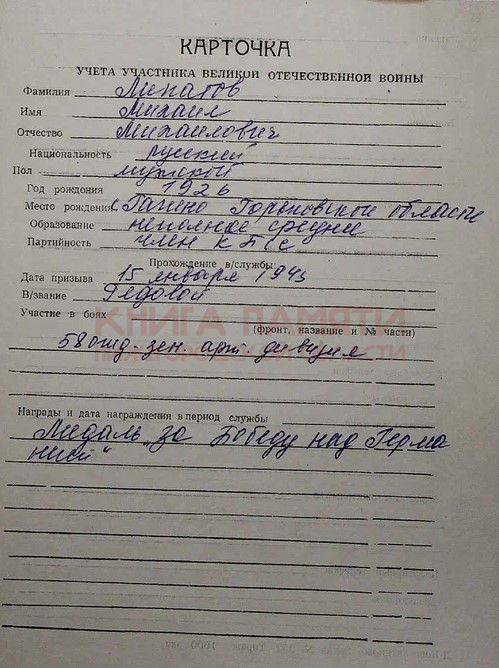 КАРТОЧКА
УЧЕТА УЧАСТНИКА ВЕЛИКОЙ ОТЕЧЕСТВЕННОЙ ВОЙНЫ
Фамилия Липатов
Имя Михаил
Отчество Михаилович
Национальность русский
Пол мужской
Год рождения 1926
Место рождения с. Гагино Горьковской области
Образование неполное среднее
Партийность член КПС
Прохождение в/службы:
Дата призыва 15 января 1943
В/звание Рядовой
Участие в боях
(фронт, название и № части)
КНИГА ПАМЯТИ
58 зен. арт. дивизия
Награды и дата награждения в период службы
Медаль „за Победу над Герма
нией"